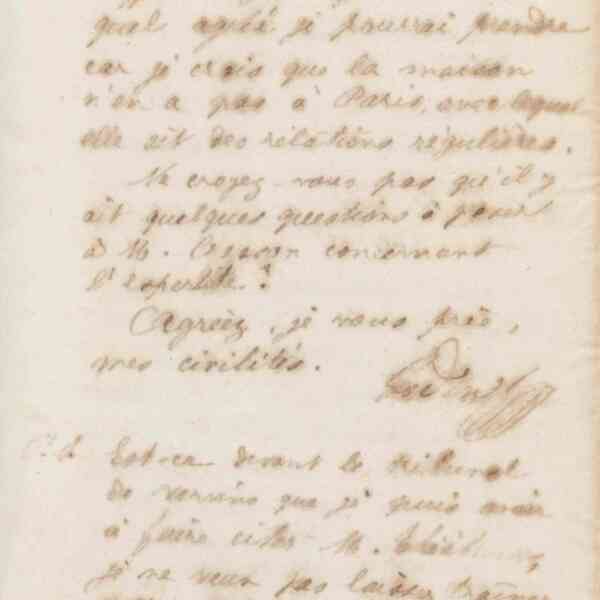 quel agréé je pourrai prendre
car je crois que la maison
n'en a pas à Paris, avec lequel
elle ait des relations régulières.
Ne croyez-vous pas qu'il y
ait quelques questions à poser
à M. concernant
l'expertise ?
Agréez, je vous prie,
mes civilités.
Godin
P.S. Est-ce devant le tribunal
de Vervins que je puis avoir
à faire citer M.
je ne veux pas laisser traîner